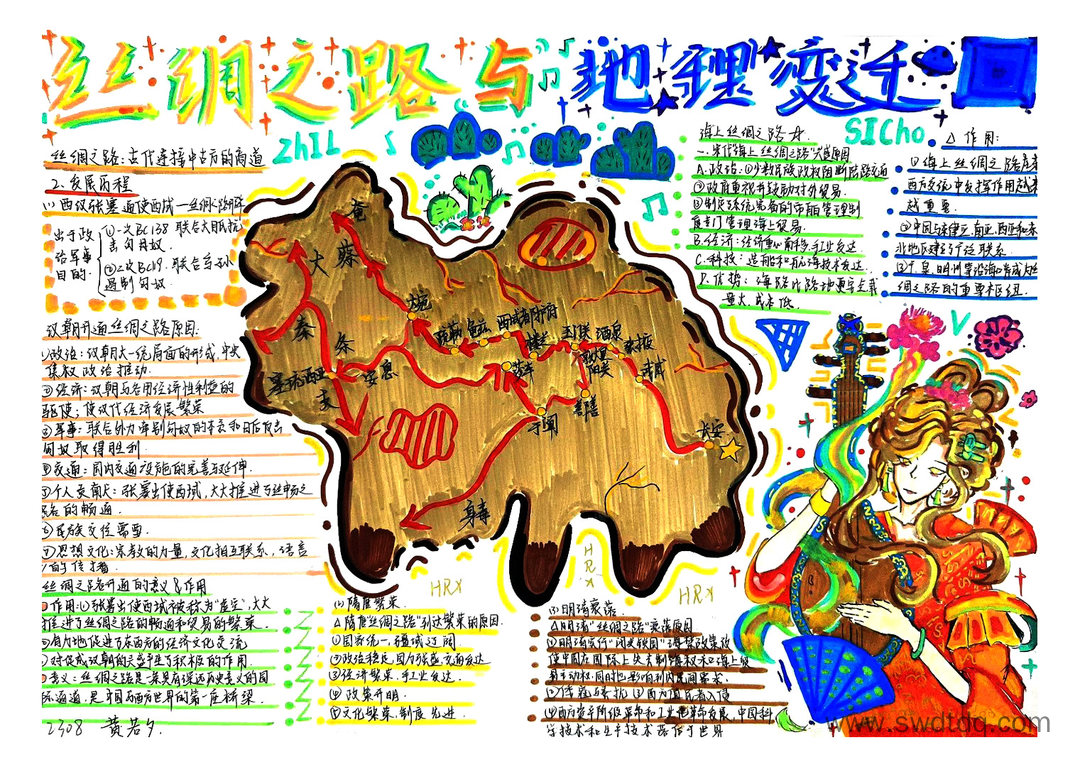 丝绸之路与地理变迁
ZhIL
SICho
丝绸之路:古代连接中古方的商道
2.发展历程
(1)西汉张骞通使西域—丝绸
出于政治军事目的:
①一次BC138 联合大月氏抗击匈奴.
②2次BC119.联合乌孙遏制匈奴
汉朝开通丝绸之路原因:
①政治:汉朝大一统局面的形成,中央
集权政治推动.
②经济:汉朝
驱使;使汉代经济发展繁荣
③军事:联合外力
匈奴取得胜利.
④交通:国内交通设施的完善与延伸.
⑤个人贡献大:张骞出使西域,大大推进了丝绸之
路的畅通.
⑥民族交往需要.
⑦思想文化:宗教的力量,文化相互联系,语言
的传播.
丝绸之路开通的意义&作用
①作用:①张骞出使西域被称为"凿空",大大
推进了丝绸之路的畅通和贸易的繁荣.
②有力地促进了东西方的经济文化交流
③对促成汉朝的兴盛产生了积极的作用.
意义:丝绸之路是一条具有深远历史意义的国
际通道,是中国与西方世界的第一座桥梁.
2308 黄若夕.
奄
大
蔡
秦
条
支
大宛
疏勒
龟兹
西域都护府
楼兰
玉门关
酒泉
敦煌
阳关
张掖
武威
安息
莎车
于阗
若羌
长安
身毒
HRX
HRX
HRX
(2)隋唐繁荣.
△隋唐"丝绸之路"到达繁荣的原因.
①国家统一,疆域辽阔
②政治稳定,国力强盛,交通发达
③经济繁荣,手工业发达.
④政策开明.
⑤文化繁荣,制度先进.
(3)明清衰落.
△明清"丝绸之路"衰落原因
①明清实行"闭关锁国""海禁政策致
使中国在国际上失去制海权和海上贸
易主动权,同时也影响到内民间需求.
②倭寇与袭扰 ③西方殖民者入侵
④西方资产阶级革命和工业革命发展,中国科
学技术和生产技术落后于世界
海上丝绸之路
一.宋代"海上丝绸之路"兴盛原因
A.政治:①少数民族政权阻断陆路交通
②政府重视并鼓励对外贸易.
③制定系统完备的市舶管理制
度专门管理海上贸易.
B.经济:经济重心南移,手工业发达
C.科技:造船和航海技术发达.
D.优势:海路比陆地更安全载
量大,成本低.
△作用:
①海上丝绸之路在东
西方交流中发挥作用越来
越重要.
②中国与东南亚,南亚,西亚和东
北地区建了个经联系.
③广泉,明州等沿海口岸成为丝
绸之路的重要枢纽.
www.swdtdq.com